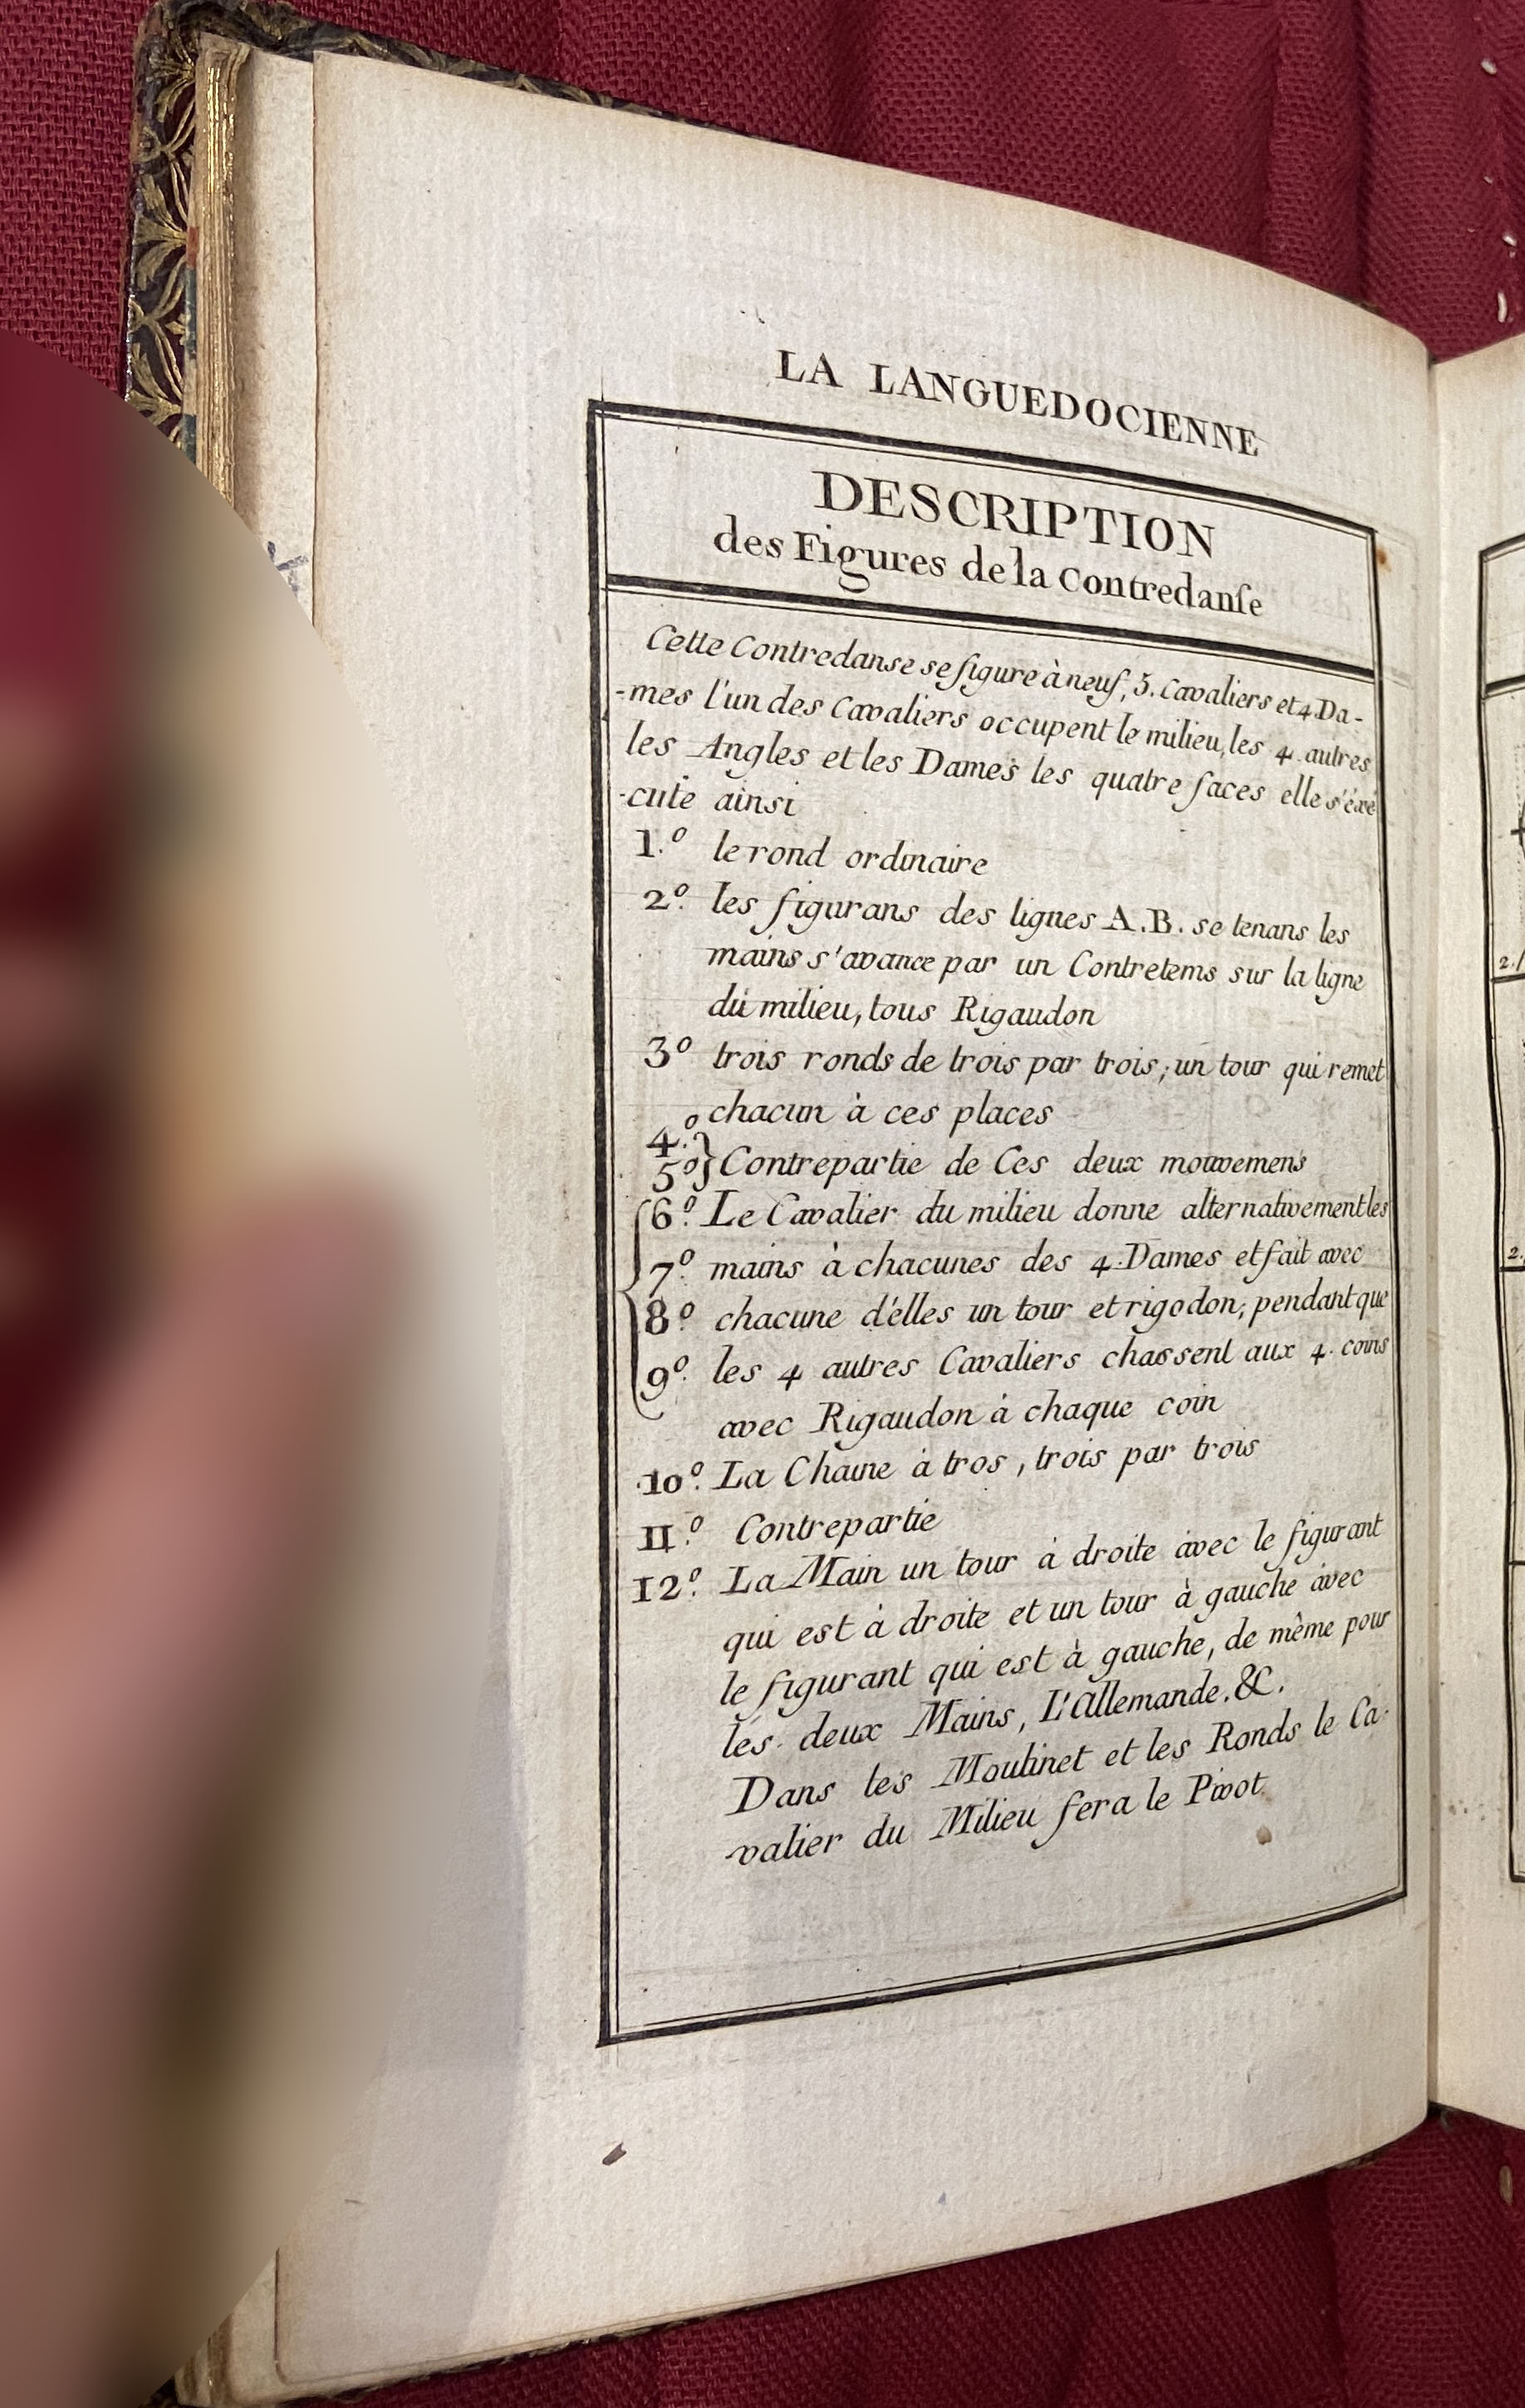 LA LANGUEDOCIENNE
DESCRIPTION
des Figures de la Contredanſe
Cette Contredanse se figure à neuf, 5. Cavaliers et 4 Da-
-mes l'un des Cavaliers occupent le milieu, les 4 autres
les Angles et les Dames les quatre faces elle s'éxé
-cute ainsi
1.º le rond ordinaire
2º. les figurans des lignes A.B. se tenans les
mains s'avance par un Contretems sur la ligne
du milieu, tous Rigaudon
3º trois ronds de trois par trois; un tour qui remet
chacun à ces places
4.º
5º} Contrepartie de Ces deux mouvemens
6º. Le Cavalier du milieu donne alternativement les
7º. mains à chacunes des 4 Dames et fait avec
8º. chacune d'élles un tour et rigodon; pendant que
9º. les 4 autres Cavaliers chassent aux 4 coins
avec Rigaudon à chaque coin
10º. La Chaine à tros, trois par trois
11.º Contrepartie
12º. La Main un tour à droite avec le figurant
qui est à droite et un tour à gauche avec
le figurant qui est à gauche, de même pour
les deux Mains, L'Allemande. &c.
Dans les Moulinet et les Ronds le Ca-
-valier du Milieu fera le Pivot
2.
2.